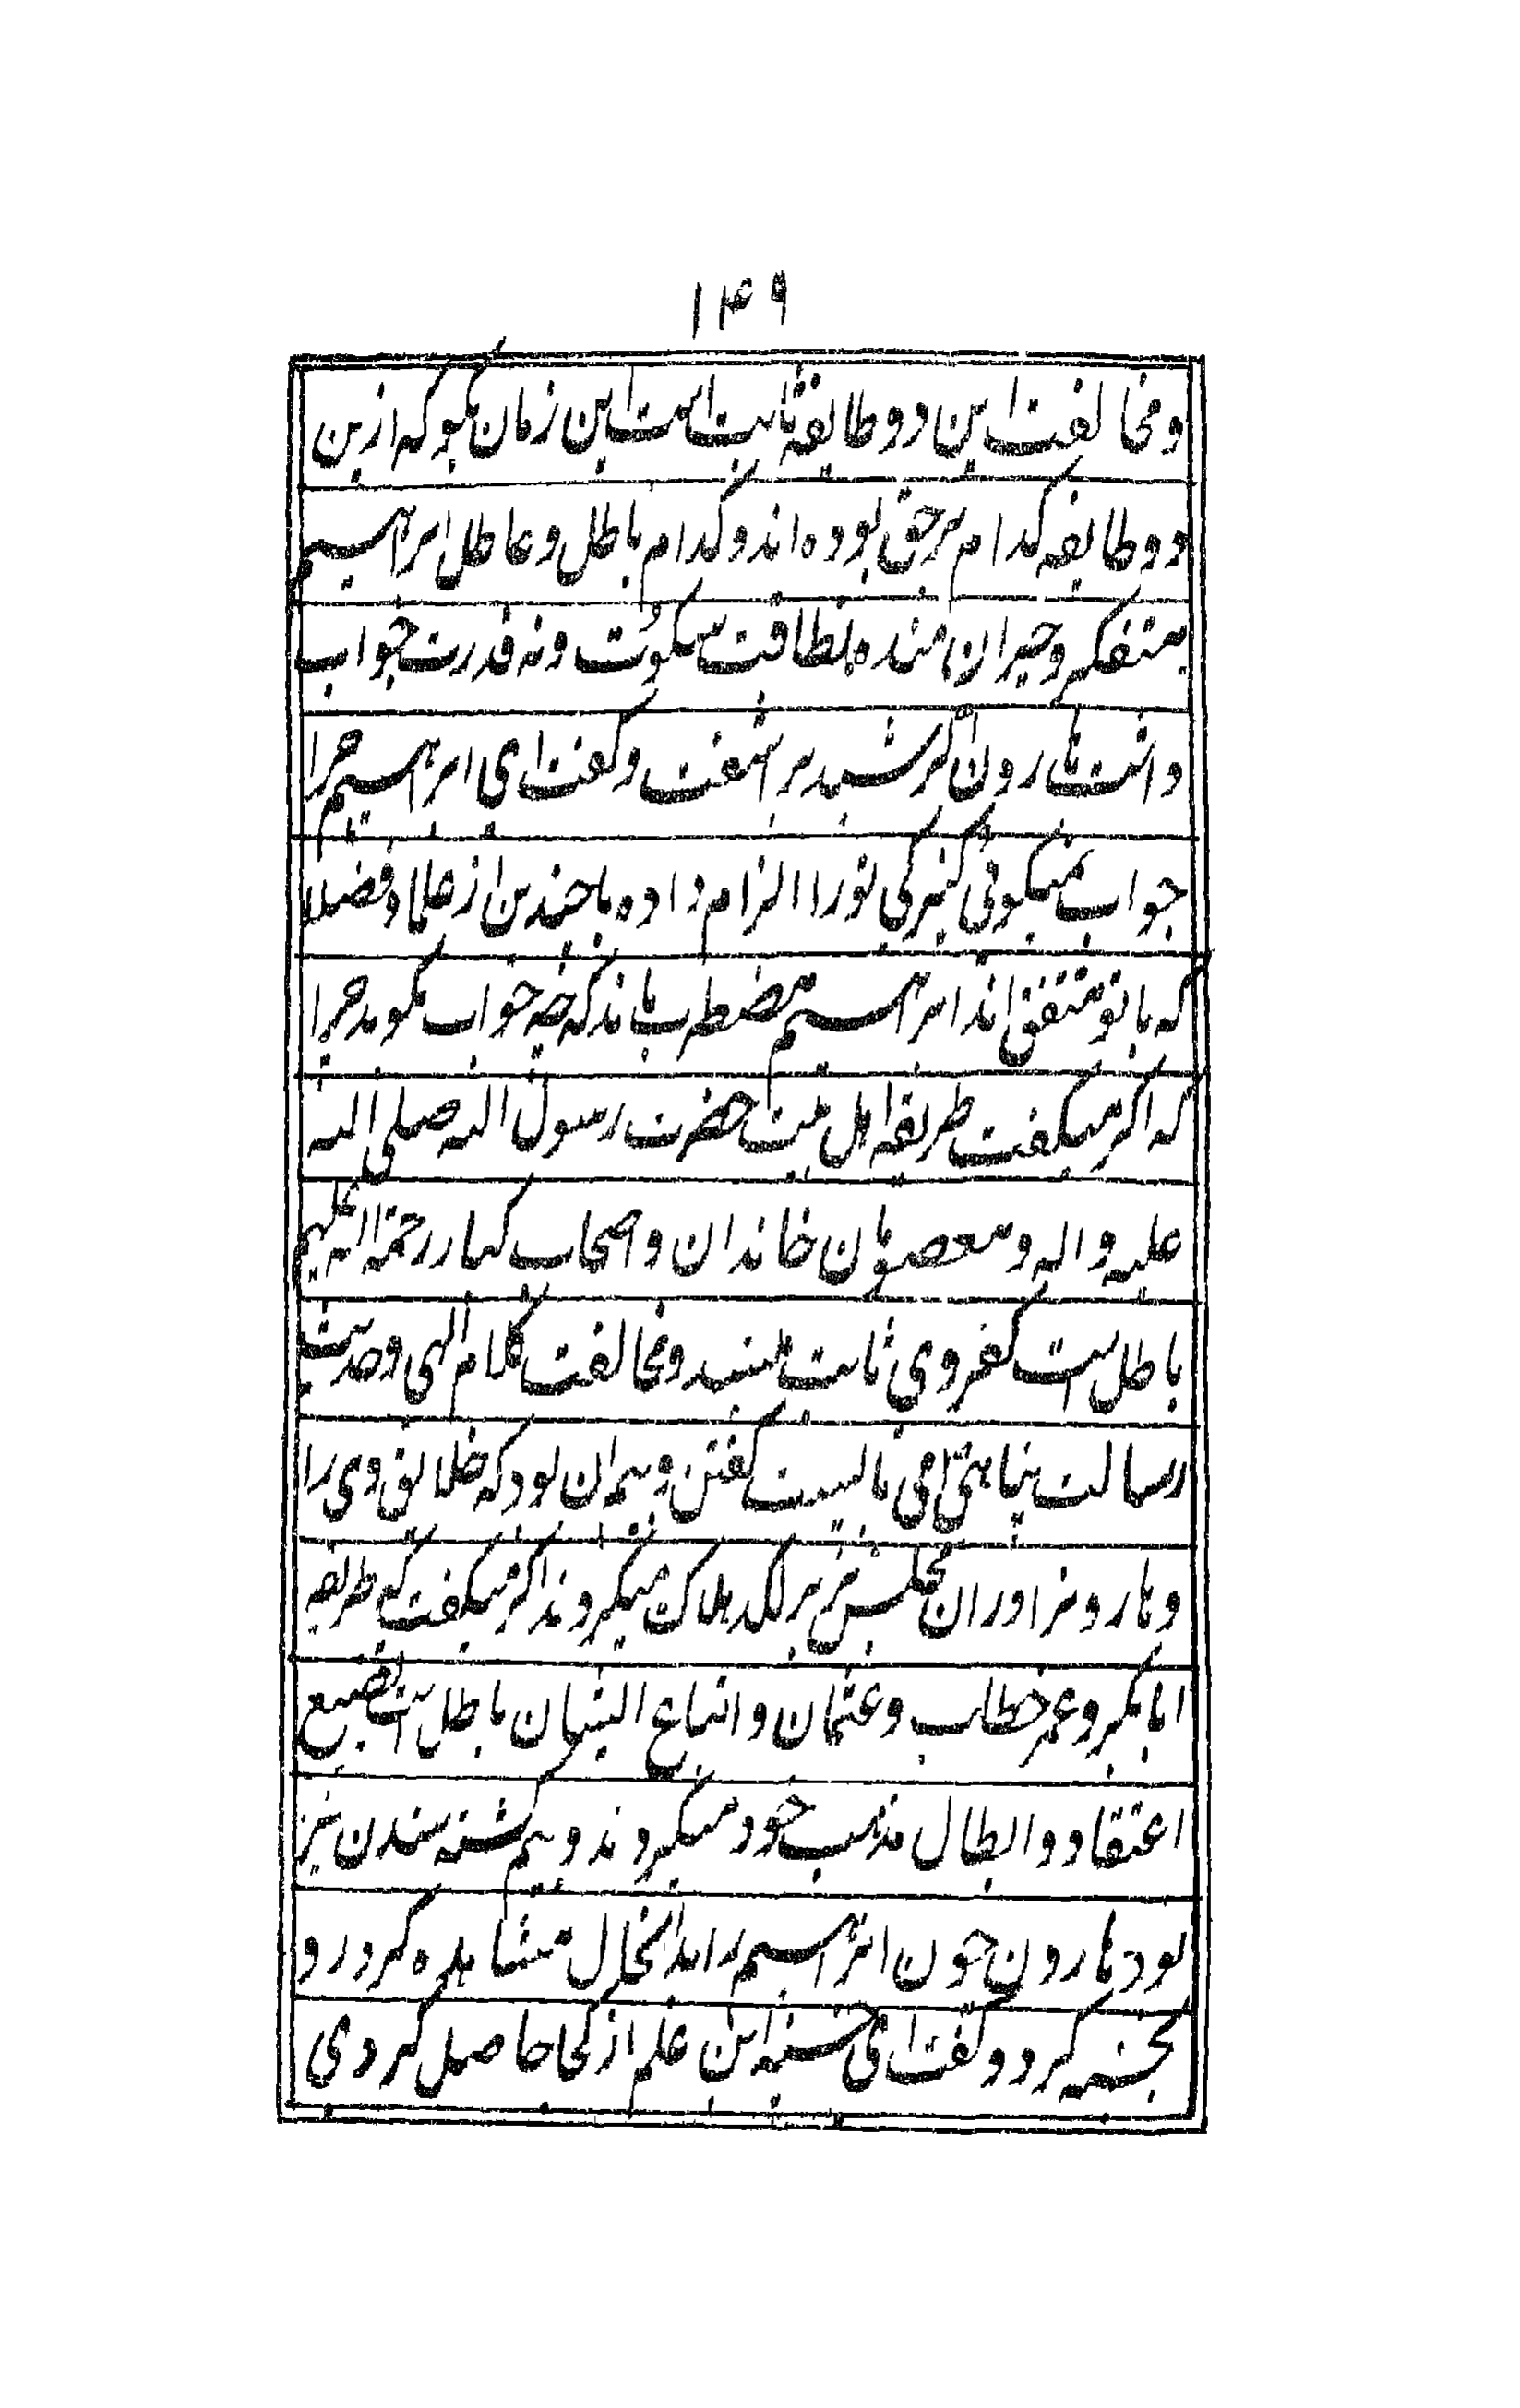 ۱۴۹
و مخالفت این دو طایفه ثابت است این زمان بگو که ازین
دو طایفه کدام برحق بوده اند و کدام باطل و عاطل ابراهیم
متفکر و حیران مانده نه طاقت سکوت و نه قدرت جواب
داشت هارون الرشید بر آشفت و گفت ای ابراهیم چرا
جواب نمیگوئی کنیزکی تو را الزام داده با چندین از علما و فضلا
که با تو متفق اند ابراهیم مضطرب بماند که چه جواب گوید چرا
که اگر میگفت طریقه اهل بیت حضرت رسول الله صلی الله
علیه و اله و معصومان خاندان و اصحاب کبار رحمة الله علیهم
باطل است کفر وی ثابت میشد و مخالفت کلام الهی و حدیث
رسالت پناهی می بایست گفتن و بیم ان بود که خلایق وی را
و هارونرا در ان مجلس بزیر لگد هلاک میکردند اگر میگفت که طریقه
ابابکر و عمر خطاب و عثمان و اتباع ایشان باطل است تضییع
اعتقاد و ابطال مذهب خود میکردند و بیم کشته شدن نیز
بود هارون چون ابراهیم را بدانحال مشاهده کرد رو
بحسنیه کرد و گفت ای حسنیه این علم از کجا حاصل کردی